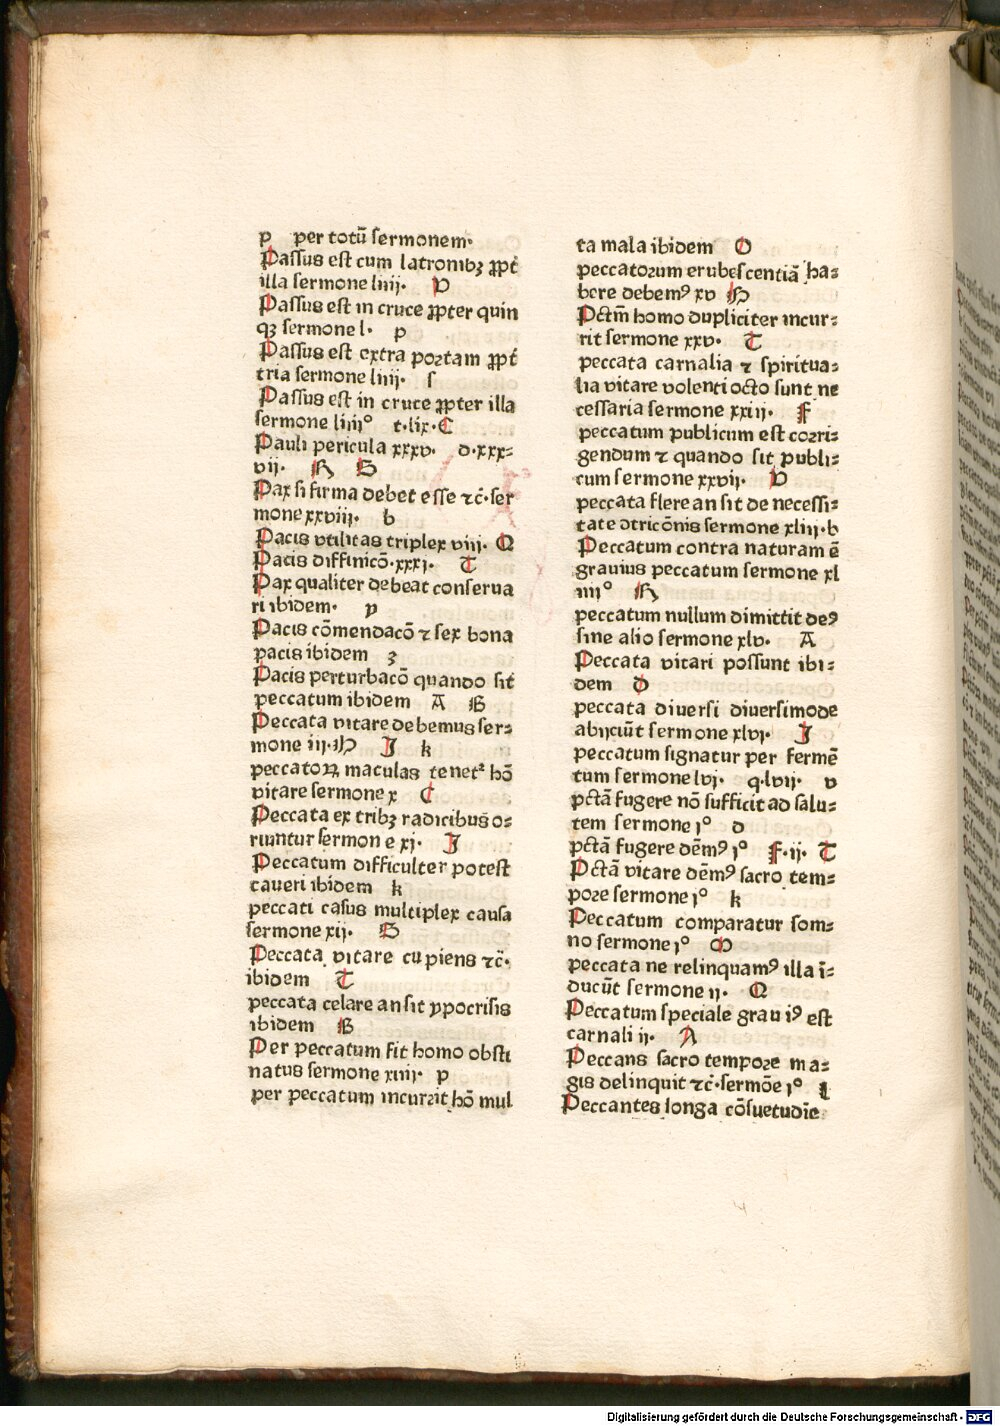 p per totū sermonem·
Passus est cum latronibꝫ ꝓpt̄
illa sermone liiij· V
Passus est in cruce ꝓpter quin
qꝫ sermone l· p
Passus est extra portam ꝓpt̄
tria sermone liiij· s
Passus est in cruce ꝓpter illa
sermone liiijº t·lix·C
Pauli pericula xxxv· d·xxx-
vij· R S
Pax si firma debet esse ⁊c̄·ser
mone xxviij· b
Pacis vtilitas triplex viij· Q
Pacis diffinicō·xxxj· T
Pax qualiter debeat conserua
ri ibidem· y
Pacis cōmendacō ⁊ sex bona
pacis ibidem ʒ
Pacis perturbacō quando sit
peccatum ibidem A B
Peccata vitare debemus ser-
mone iij·H J k
peccatoꝝ maculas tenetᷣ hō
vitare sermone x C
Peccata ex tribꝫ radicibus o-
riuntur sermone xj· J
Peccatum difficulter potest
caueri ibidem k
peccati casus multiplex causa
sermone xij· S
Peccata vitare cupiens ⁊c̄·
ibidem T
peccata celare an sit ypocrisis
ibidem B
Per peccatum fit homo obsti
natus sermone xiiij· p
per peccatum incurrit hō mul
ta mala ibidem O
peccatorum erubescentiā ha-
bere debemꝰ xv H
Pctm̄ homo dupliciter incur-
rit sermone xxv· T
peccata carnalia ⁊ spiritua-
lia vitare volenti octo sunt ne
cessaria sermone xxiij· F
peccatum publicum est corri-
gendum ⁊ quando sit publi-
cum sermone xxvij· V
peccata flere an sit de necessi-
tate ɔtricōnis sermone xliij·b
Peccatum contra naturam ē
grauius peccatum sermone xl
iiijº R
peccatum nullum dimittit deꝰ
sine alio sermone xlv· A
Peccata vitari possunt ibi-
dem D
peccata diuersi diuersimode
abijciūt sermone xlvj· J
peccatum signatur per fermē
tum sermone lvj· q·lvij· v
pctā fugere nō sufficit ad salu-
tem sermone jº d
pctā fugere dēmꝰ jº F·ij· T
Pctā vitare dēmꝰ sacro tem-
pore sermone jº k
Peccatum comparatur som-
no sermone jº M
peccata ne relinquamꝰ illa ī-
ducūt sermone ij· Q
Peccatum speciale grauiꝰ est
carnali ij· A
Peccans sacro tempore ma-
gis delinquit ⁊c̄·sermōe jº l
Peccantes longa cōsuetudīe
Digitalisierung gefördert durch die Deutsche Forschungsgemeinschaft - DFG